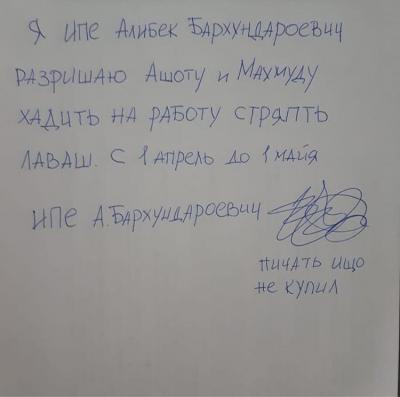 Я ИПЕ АЛИБЕК БАРХУНДАРОЕВИЧ
РАЗРИШАЮ АШОТУ И МАХМУДУ
ХАДИТЬ НА РАБОТУ СТРЯПТЬ
ЛАВАШ. С 1 АПРЕЛЬ ДО 1 МАЙЯ
ИПЕ А.БАРХУНДАРОЕВИЧ
ПИЧАТЬ ИЩО
НЕ КУПИЛ